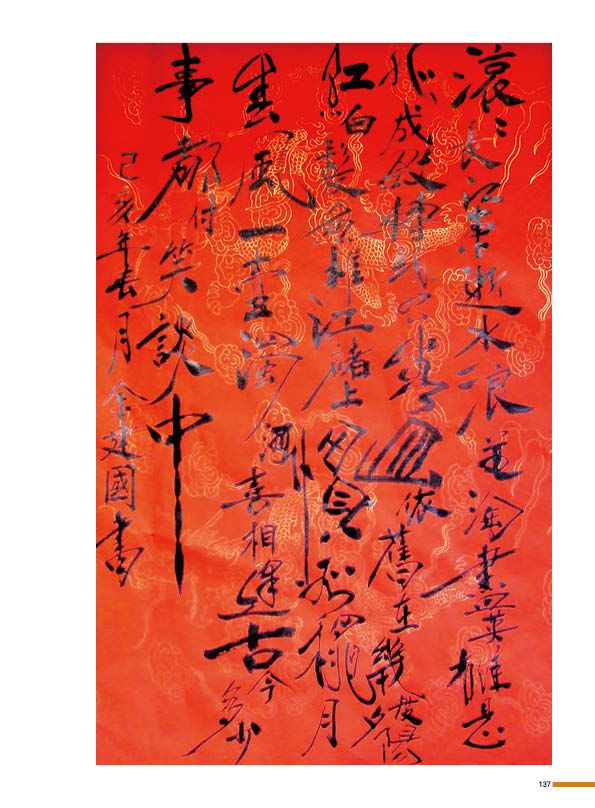 滚〻長江東逝水浪花淘盡英雄是
非成敗轉頭空青山依舊在幾度夕陽
紅白髮漁樵江渚上慣看秋月
春風一壺濁酒喜相逢古今多少
事都付笑談中
己亥年月金建國書
137